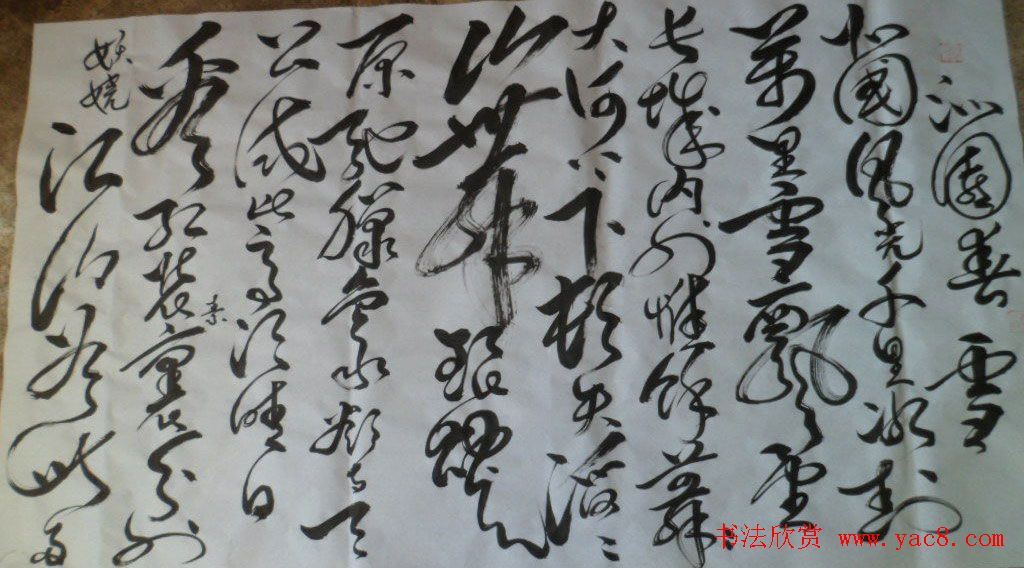 沁園春 雪
北國風光千里冰封
萬里雪飄望
长城内外惟餘莽ミ
大河上下頓失滔ミ
山舞銀蛇
原馳臘象欲与天
公試比高須晴日
看红裝素裹分外
妖嬈江山如此多
书法欣赏 www.yac8.com